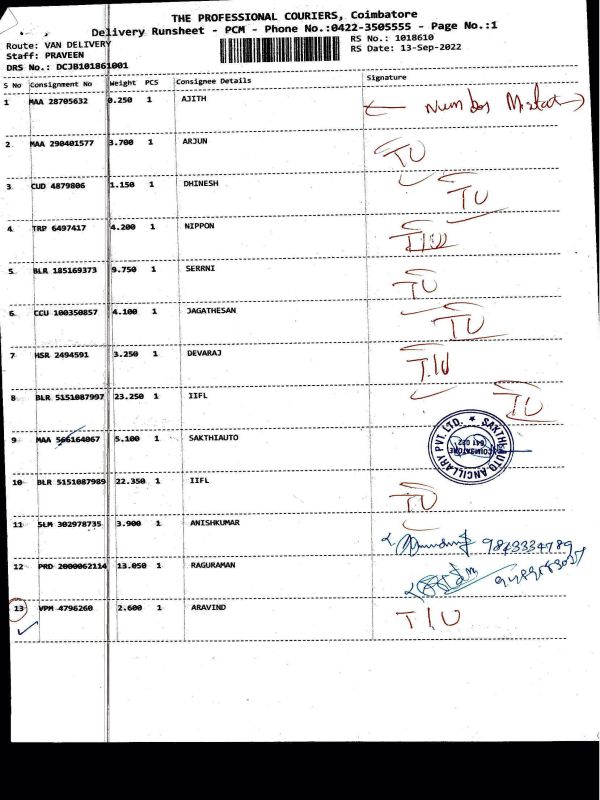 THE PROFESSIONAL COURIERS, Coimbatore
Delivery Runsheet - PCM - Phone No.:0422-3505555 - Page No.:1
Route: VAN DELIVERY RS No.: 1018610
Staff: PRAVEEN RS Date: 13-Sep-2022
DRS No.: DCJB101861001
S No Consignment No Weight PCS Consignee Details Signature
1 MAA 28705632 0.250 1 AJITH Number
2 MAA 290401577 3.700 1 ARJUN TU
3 CUD 4879806 1.150 1 DHINESH TU
4 TRP 6497417 4.200 1 NIPPON
5 BLR 185169373 9.750 1 SERRNI TU
6 CCU 100350857 4.100 1 JAGATHESAN TU
7 HSR 2494591 3.250 1 DEVARAJ T.IU
8 BLR 5151087997 23.250 1 IIFL TU
9 MAA 566164067 5.100 1 SAKTHIAUTO SAKTHI AUTO ANCILLARY PVT. LTD. ★ COIMBATORE
10 BLR 5151087989 22.350 1 IIFL TU
11 SLM 302978735 3.900 1 ANISHKUMAR 9873334789
12 PRD 2000062114 13.050 1 RAGURAMAN
13 VPM 4796260 2.600 1 ARAVIND T/U